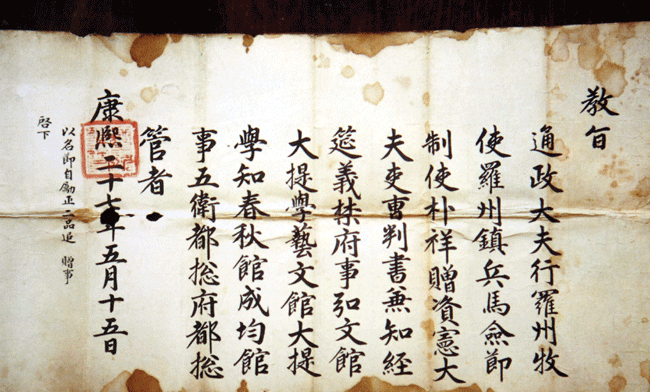 教旨
通政大夫行羅州牧
使羅州鎮兵馬僉節
制使朴祥贈資憲大
夫吏曹判書兼知經
筵義禁府事弘文館
大提學藝文館大提
學知春秋館成均館
事五衛都摠府都摠
管者
康熙二十七年五月十五日
以名卽自勵正二品追 贈事
啓下